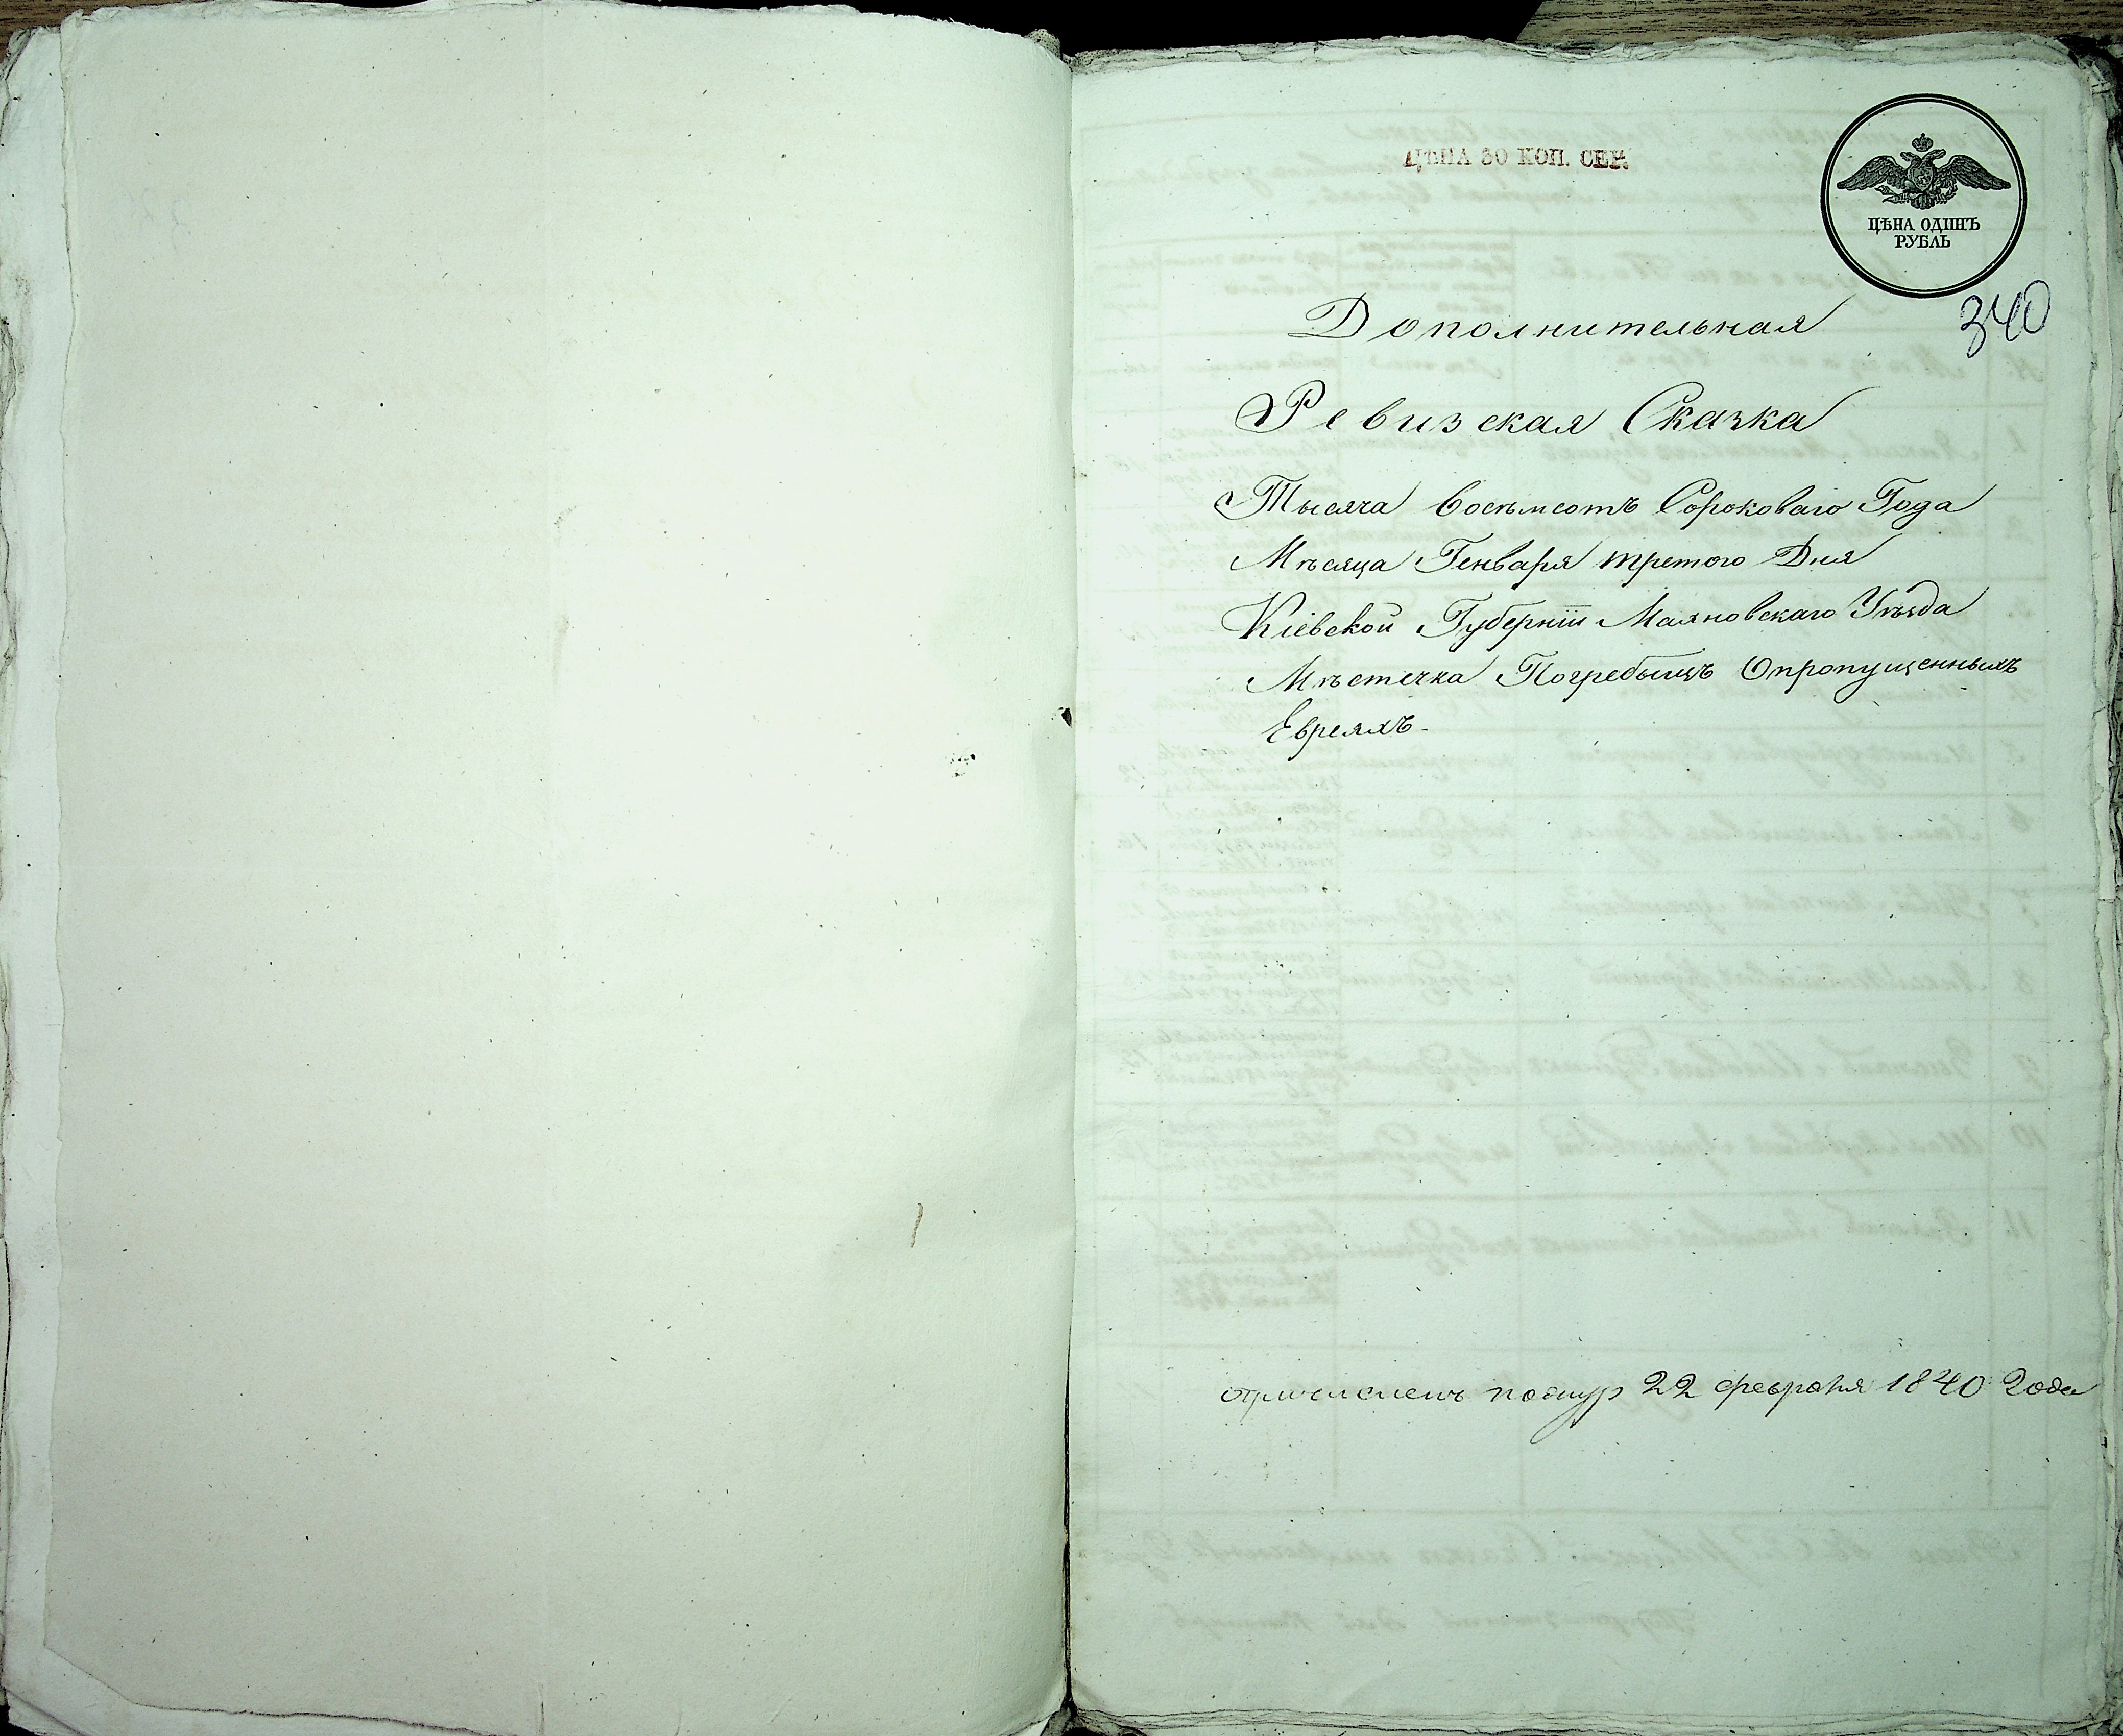 ЦѢНА 30 КОП. СЕР.
ЦѢНА ОДИНЪ
РУБЛЬ
340
Дополнительная
Ревизская Сказка
Тысяча восемсотъ Сороковаго Года
Мѣсяца Генваря третого Дня
Кіевской Губерніи Махновскаго Уѣзда
Мѣстечка Погребыщъ Опропущенныхъ
Евреяхъ.
22 февраля 1840 года